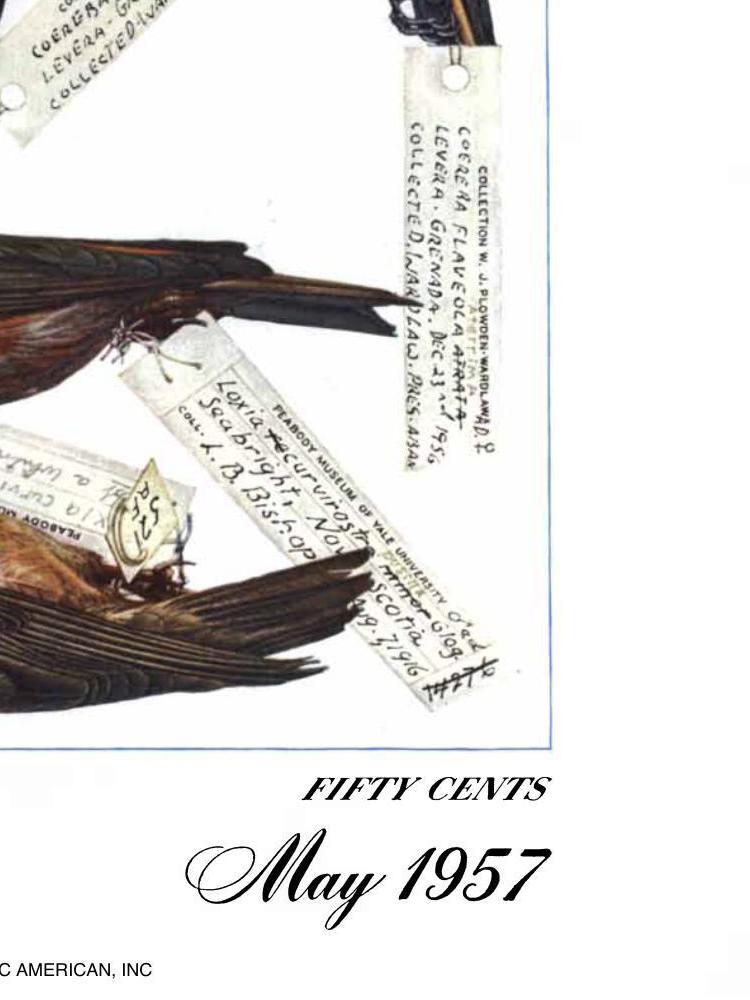 COEREBA
LEVERA. GR
COLLECTED.WA
COLLECTION W. J. PLOWDEN-WARDLAW
AD. ♀
COEREBA FLAVEOLA ATRATA
ATERRIMA
LEVERA. GRENADA. DEC 23rd 1956
COLLECTED. WARDLAW. PRES. ASIAN
PEABODY MUSEUM OF YALE UNIVERSITY
Loxia recurvirostra minor
Seabright, Nov scotia
COLL. L. B. Bishop
Aug. 7, 1916
♂ ad
xia curvi
PEABODY MU
521
FIFTY CENTS
May 1957
C AMERICAN, INC